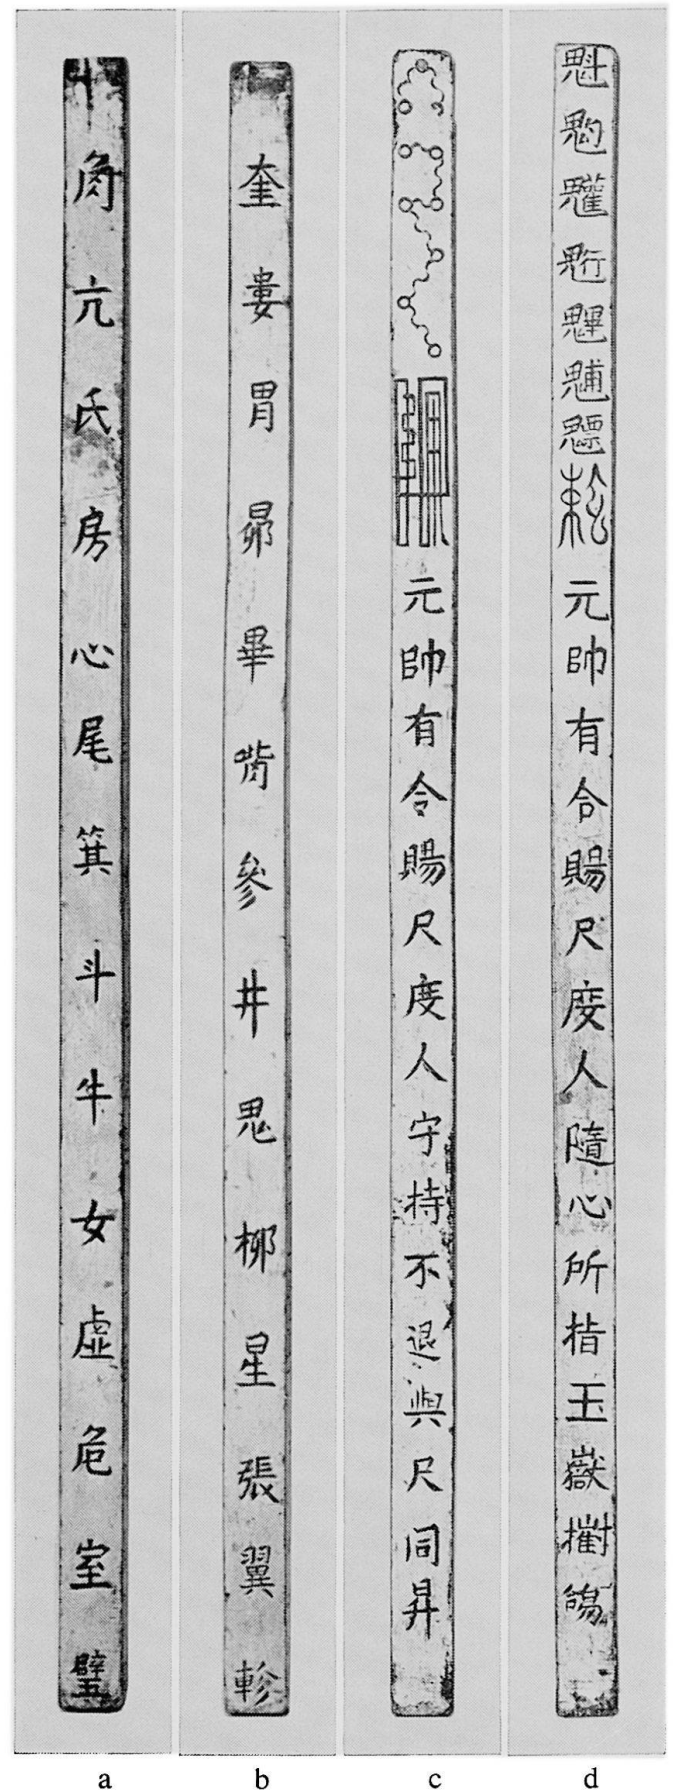 角亢氐房心尾箕斗牛女虛危室壁
奎婁胃昴畢觜參井鬼柳星張翼軫
元帥有令賜尺度人守持不退與尺同昇
元帥有令賜尺度人隨心所指玉嶽摧
a b c d